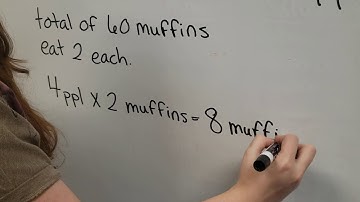 total of 60 muffins
eat 2 each.
4 ppl x 2 muffins = 8 muffi